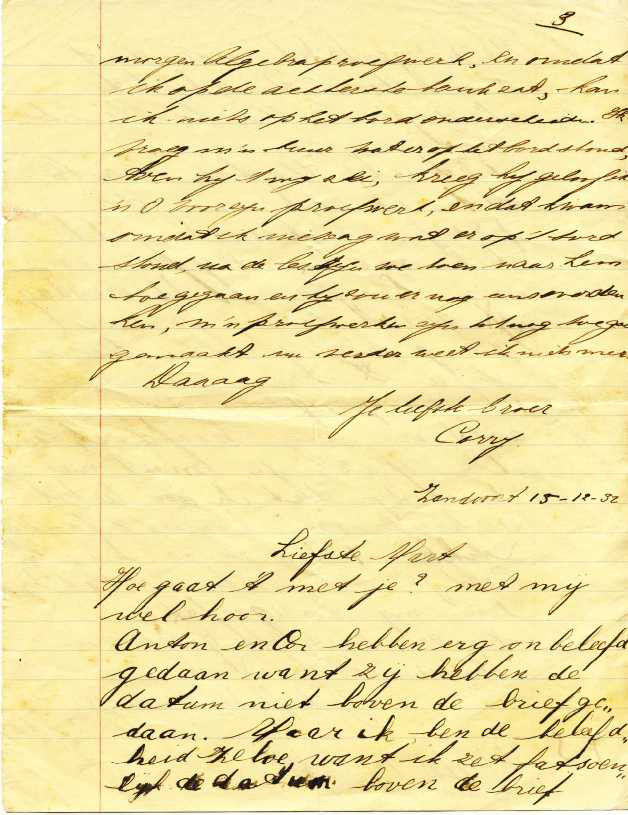 3
morgen Algebraproefwerk, en omdat
ik op de achterste bank zat, kan
ik niets op het bord onderscheiden. Ik
vroeg m'n buur wat er op het bord stond,
toen hij 't mij zei, kreeg hij geloof ik
n 0 voor zijn proefwerk, en dat kwam
omdat ik niet zag wat er op 't bord
stond, na de les zijn we toen naar hem
toe gegaan en hij zou er nog eens over den
ken, m'n proefwerken zijn
gemaakt nu verder weet ik niets meer
Daaaag
Je liefste broer
Corry.
Zandvoort 15-12-32
Liefste Mart
Hoe gaat 't met je? met mij
wel hoor.
Anton en Cor hebben erg onbeleefd
gedaan want zij hebben de
datum niet boven de brief ge„
daan. Maar ik ben de beleefd„
heid zelve, want ik zet fatsoen„
lijk de datum boven de brief